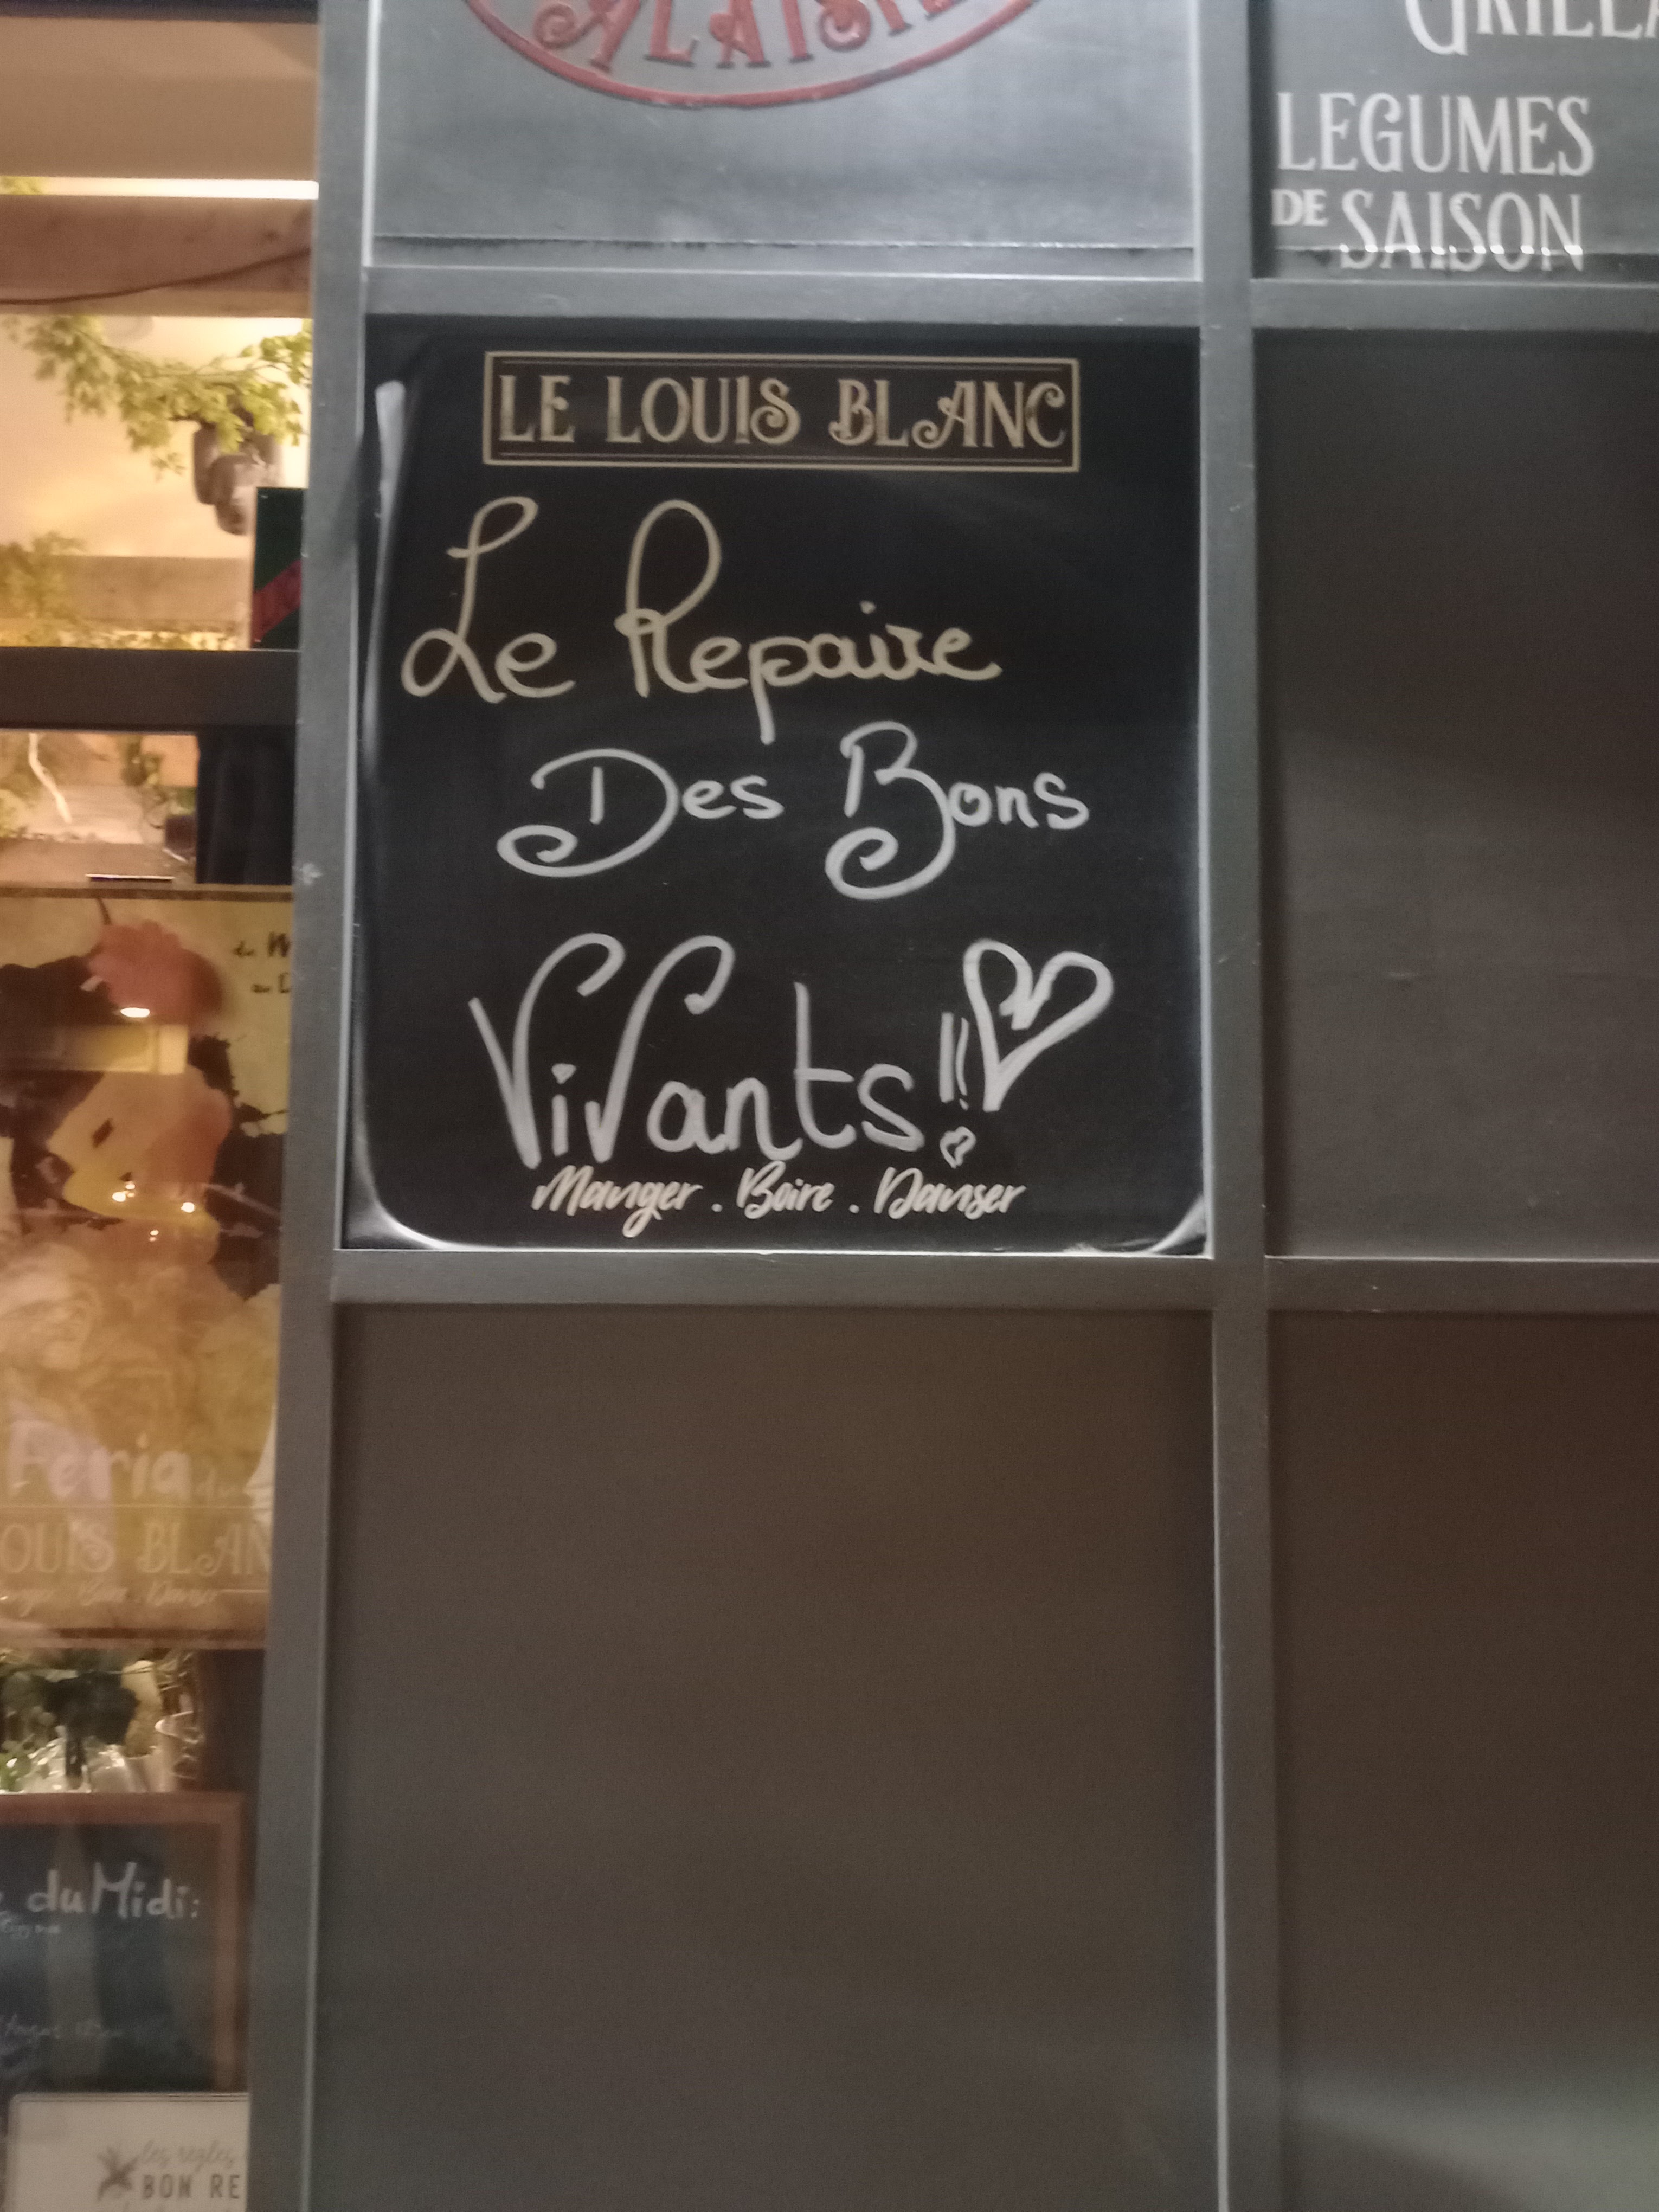 GRILLA
LEGUMES
DE SAISON
LE LOUIS BLANC
Le Repaire
Des Bons
ViVants!!
Manger . Boire . Danser
Feria du
OUIS BLAN
Boire . Danser
du Midi:
les regles
BON RE